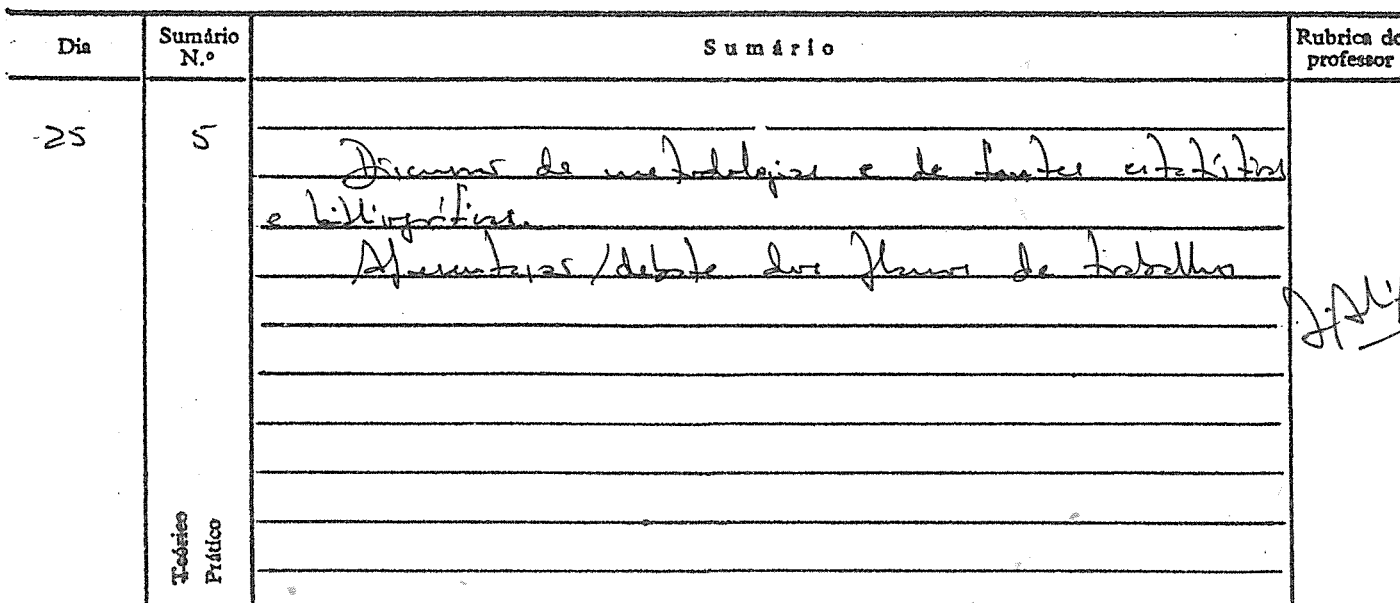 Dia
Sumário N.º
Sumário
Rubrica do professor
25
5
Discussão de metodologias e de fontes estatísticas
e bibliográficas.
Apresentação/debate dos planos de trabalho
Teórico
Prático